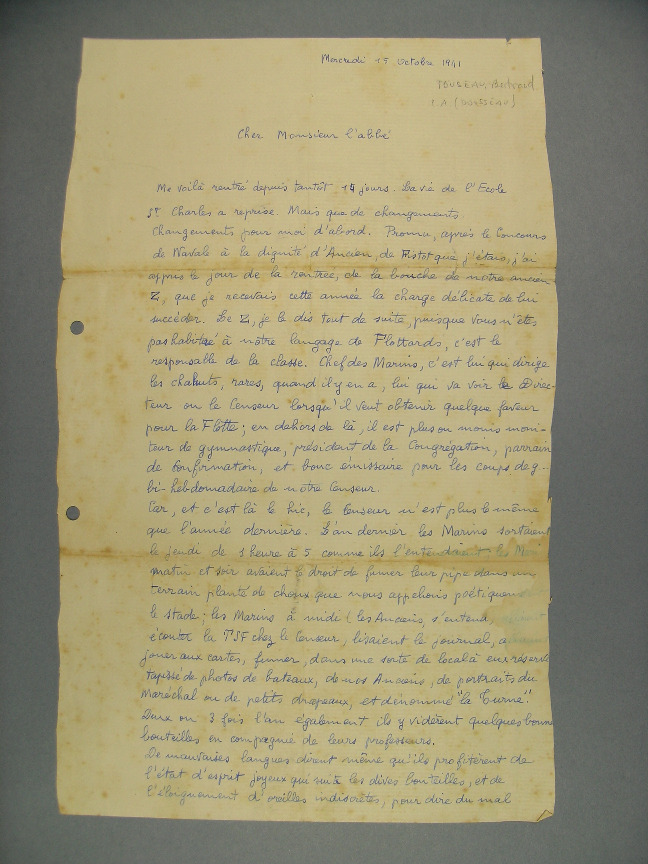 Mercredi 15 Octobre 1941
Cher Monsieur l'abbé
Me voilà rentré depuis tantôt 14 jours. La vie de l'Ecole
St Charles a repris. Mais que de changements.
Changements pour moi d'abord. Promu, après le Concours
de Navale à la dignité d'Ancien, de Fistot que j'étais, j'ai
appris le jour de la rentrée, de la bouche de notre ancien
Z, que je recevais cette année la charge délicate de lui
succéder. Le Z, je le dis tout de suite, puisque vous n'êtes
pas habitué à notre langage de Flottards, c'est le
responsable de la classe. Chef des Marins, c'est lui qui dirige
les chahuts, rares, quand il y en a, lui qui va voir le Direc-
teur ou le Censeur lorsqu'il veut obtenir quelque faveur
pour la Flotte ; en dehors de là, il est plus ou moins moni-
teur de gymnastique, président de la Congrégation, parrain
de Confirmation, et bouc émissaire pour les coups de g...
bi-hebdomadaire de notre Censeur.
Car, et c'est là le hic, le Censeur n'est plus le même
que l'année dernière. L'an dernier les Marins sortaient
le jeudi de 1 heure à 5 comme ils l'entendaient ; les
matin et soir avaient le droit de fumer leur pipe dans un
terrain planté de choux que nous appelions poétiquement
le stade ; les Marins à midi (les Anciens s'entend,
écouter la TSF chez le Censeur, lisaient le journal,
jouer aux cartes, fumer, dans une sorte de local à eux réservé
tapissé de photos de bateaux, de nos Anciens, de portraits du
Maréchal ou de petits drapeaux, et dénommé "la Turne".
Deux ou 3 fois l'an également ils y vidèrent quelques bonnes
bouteilles en compagnie de leurs professeurs.
De mauvaises langues dirent même qu'ils profitèrent de
l'état d'esprit joyeux qui suit les dives bouteilles, et de
l'éloignement d'oreilles indiscrètes, pour dire du mal